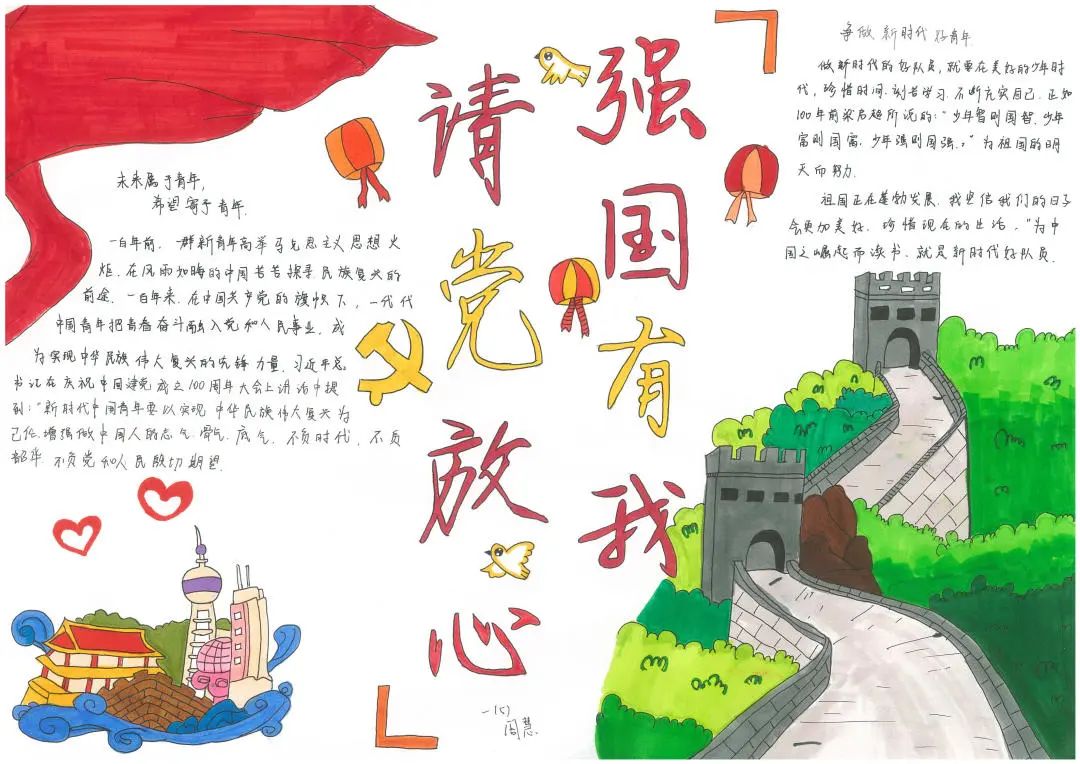 请党放心
强国有我
未来属于青年，
希望寄于青年.
一百年前，一群新青年高举马克思主义思想火
炬，在风雨如晦的中国苦苦探寻民族复兴的
前途，一百年来，在中国共产党的旗帜下，一代代
中国青年把青春奋斗融入党和人民事业，成
为实现中华民族伟大复兴的先锋力量。习近平总
书记在庆祝中国建党成立100周年大会上讲话中提
到："新时代中国青年要以实现中华民族伟大复兴为
己任.增强做中国人的志气.骨气.底气，不负时代，不负
韶华，不负党和人民殷切期望.
争做新时代好青年
做新时代的好队员，就要在美好的少年时
代，珍惜时间.刻苦学习.不断充实自己.正如
100年前梁启超所说的："少年智则国智.少年
富则国富，少年强则国强。"为祖国的明
天而努力.
祖国正在蓬勃发展.我坚信我们的日子
会更加美好.珍惜现在的生活，"为中
国之崛起而读书.就是新时代好队员.
周慧